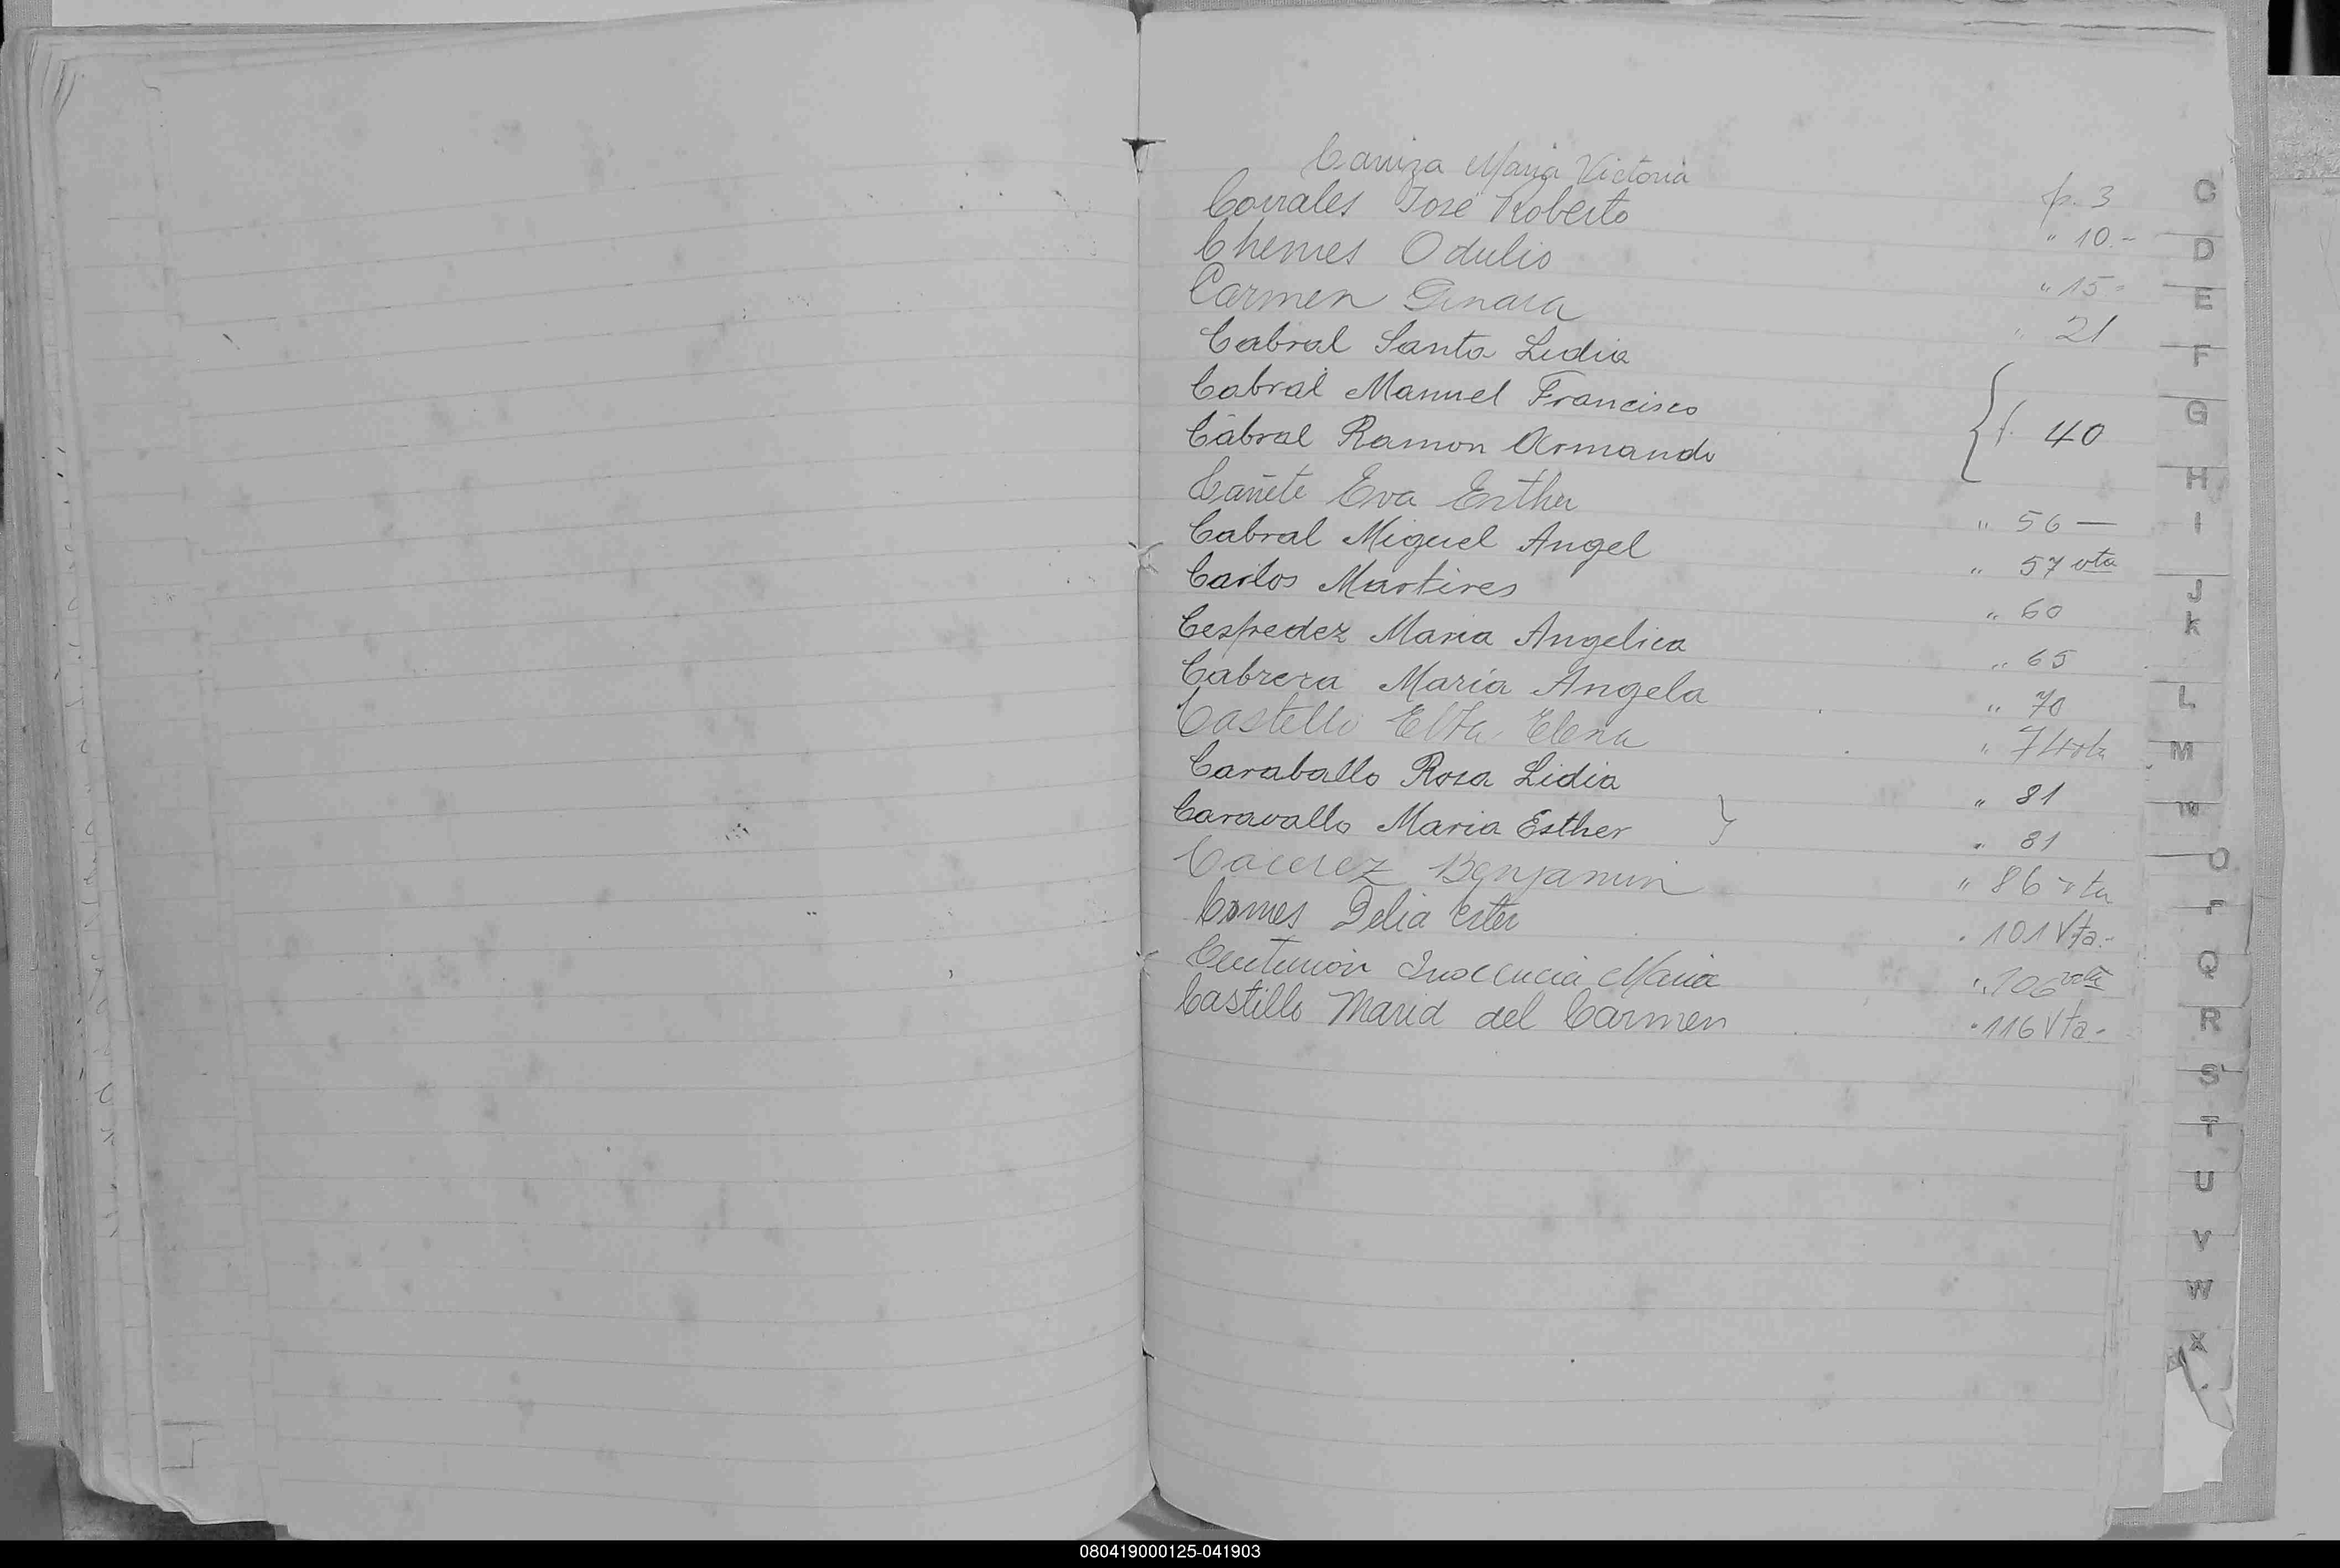 Caniza Maria Victoria p. 3
Corrales José Roberto " 10.-
Chemes Odulio " 15-
Carmen Genara " 21
Cabral Santa Lidia
Cabral Manuel Francisco { f. 40
Cabral Ramon Armando
Cañete Eva Esther " 56 —
Cabral Miguel Angel " 57 vta
Carlos Martires " 60
Cespedez Maria Angelica " 65
Cabrera María Angela " 70
Castello Elena " 74 vta
Caraballo Rosa Lidia " 81
Caravallo Maria Esther } " 81
Cacerez Benjamin " 86 vta
Delia Ester " 101 Vta.-
Centurión Inocencia Maria " 106 vta
Castillo Maria del Carmen " 116 Vta-
C
D
E
F
G
H
I
J
K
L
M
O
P
Q
R
S
T
U
V
W
X
080419000125-041903